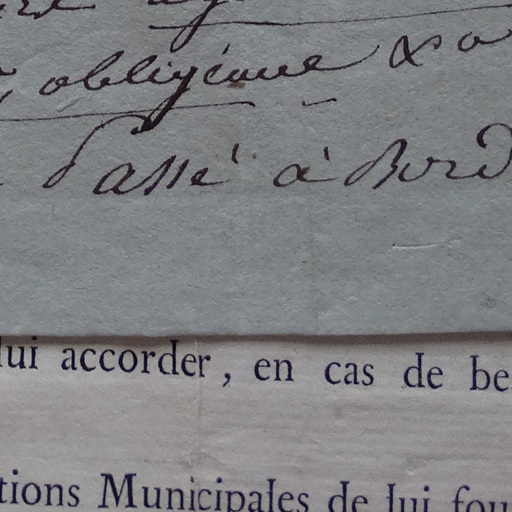 obligeance
Passé à Bord
lui accorder, en cas de be
tions Municipales de lui fou